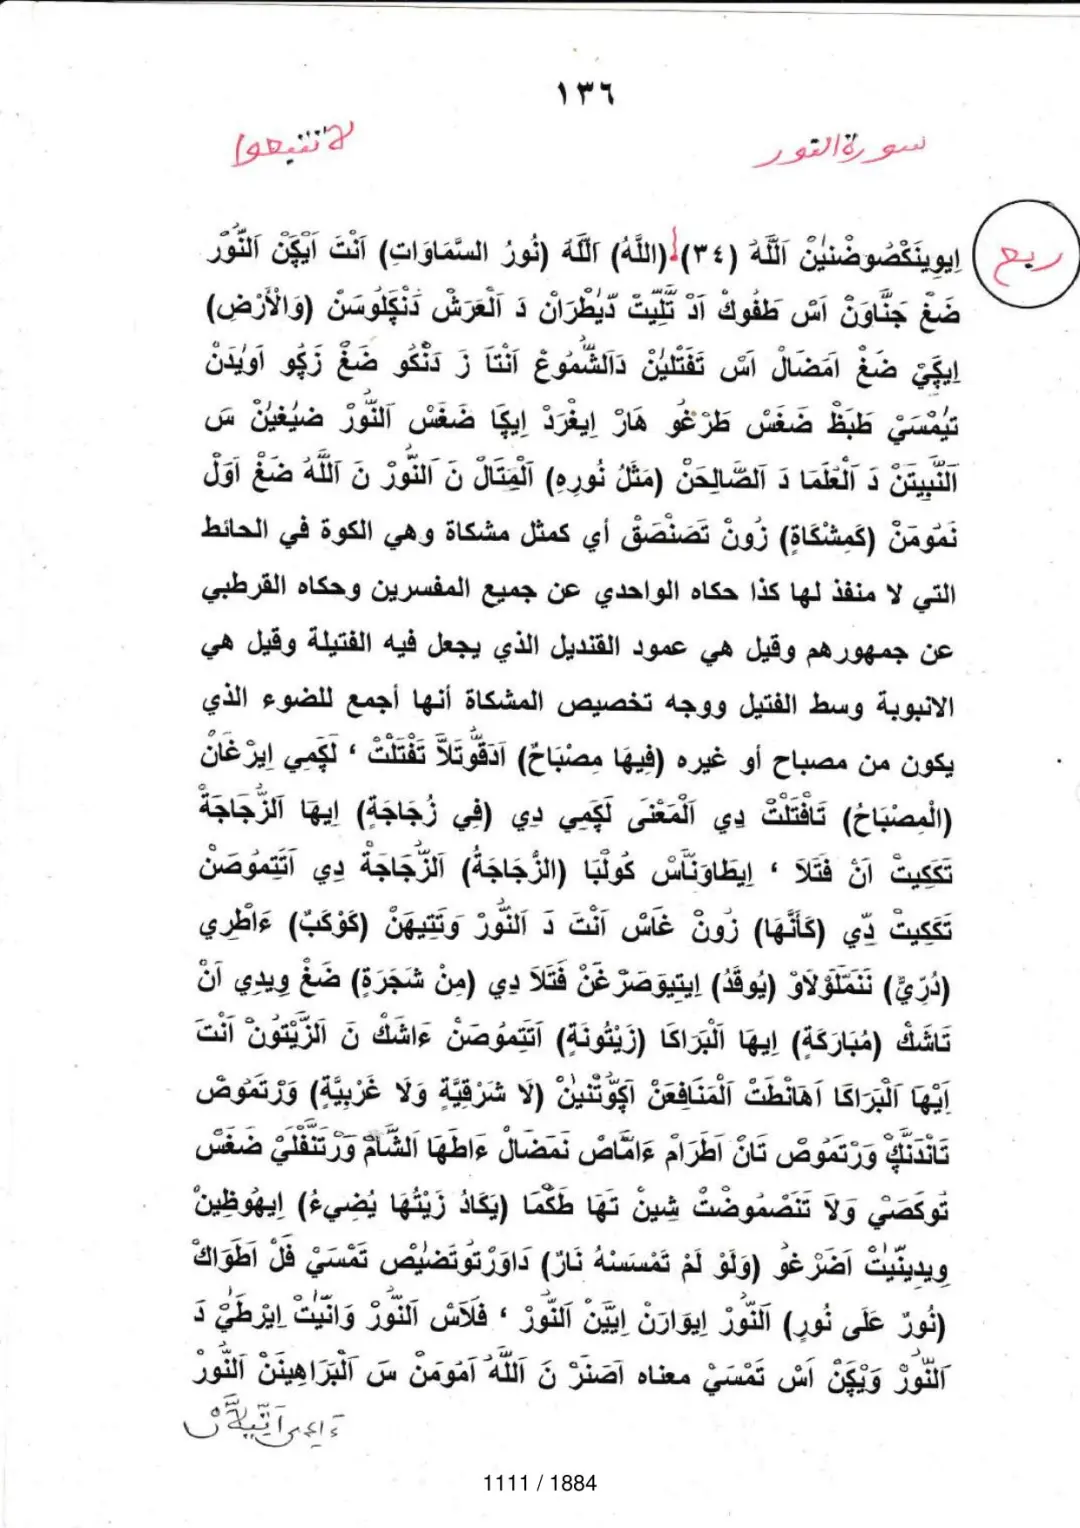 ١٣٦
سورة النور
لا تتبعوا
ربع
اِيوِينَكْصُوضْنيْنْ اَللَّهُ (٣٤) (اللَّهُ) اَللَّهُ (نُورُ السَّمَاوَاتِ) اَنْتَ اَيكّنْ اَلنُّورْ
ضَغْ جَنَّاوَنْ اَسْ طَفُوكْ اَدْ تَّلِيّتْ دّيُطْرَانْ دَ اَلْعَرَشْ دَنْكِلُوسَنْ (وَالْأَرْضِ)
اِيكّيْ ضَغْ اَمَضَالْ اَسْ تَفَتْلِيْنْ دَالشُّمُوعْ اَنْتَا زَ دَنْكُو ضَغْ زَكُو اَوْيدَنْ
تيْمْسَيْ طَبَظْ ضَغَسْ طَرْغُو هَارْ اِيغْرَدْ اِيكَا ضَغَسْ اَلنُّورْ ضيْغيْنْ سَ
اَلنَّبِيتَنْ دَ اَلْعُلَمَا دَ اَلصَّالِحَنْ (مَثَلُ نُورِهِ) اَلْمِتَالْ نَ اَلنُّورْ نَ اَللَّهُ ضَغْ اَوَلْ
نَمُومَنْ (كَمِشْكَاةٍ) زُونْ تَصَنْصَقْ أي كمثل مشكاة وهي الكوة في الحائط
التي لا منفذ لها كذا حكاه الواحدي عن جميع المفسرين وحكاه القرطبي
عن جمهورهم وقيل هي عمود القنديل الذي يجعل فيه الفتيلة وقيل هي
الانبوبة وسط الفتيل ووجه تخصيص المشكاة أنها أجمع للضوء الذي
يكون من مصباح أو غيره (فِيهَا مِصْبَاحٌ) اَدَقُّوتَلاَّ تَفْتَلْتْ ، لَكَمِي اِيرْغَانْ
(الْمِصْبَاحُ) تَافْتَلْتْ دِي اَلْمَعْنَى لَكَمِي دِي (فِي زُجَاجَةٍ) اِيهَا اَلزُّجَاجَةْ
تَكَكِيتْ اَنْ فَتَلاَ ، اِيطَاوَنَّاسْ كُولْبَا (الزُّجَاجَةُ) اَلزُّجَاجَةْ دِي اَتَتِمُوصَنْ
تَكَكِيتْ دِّي (كَأَنَّهَا) زُونْ غَاسْ اَنْتَ دَ اَلنُّورْ وَتَتِيهَنْ (كَوْكَبٌ) ءَاطْرِي
(دُرِّيٌّ) نَنَمَّلَوْلاَوْ (يُوقَدُ) اِيتِيوَصَرْغَنْ فَتَلاَ دِي (مِنْ شَجَرَةٍ) ضَغْ وِيدِي اَنْ
تَاشَكْ (مُبَارَكَةٍ) اِيهَا اَلْبَرَاكَا (زَيْتُونَةٍ) اَتَتِمُوصَنْ ءَاشَكْ نَ اَلزَّيْتُونْ اَنْتَ
اَيْهَا اَلْبَرَاكَا اَهَانْطَتْ اَلْمَنَافِعَنْ اَكُوّتْنيْنْ (لَا شَرْقِيَّةٍ وَلَا غَرْبِيَّةٍ) وَرْتَمُوصْ
تَانْدَنّكْ وَرْتَمُوصْ تَانْ اَطَرَامْ ءَامَّاصْ نَمَضَالْ ءَاطَهَا اَلشَّامْ وَرْتَنْفَلَيْ ضَغَسْ
تُوكَصَيْ وَلاَ تَنَصْمُوضْتْ شِينْ تَهَا طَكْمَا (يَكَادُ زَيْتُهَا يُضِيءُ) اِيهُوظِينْ
وِيدِينّيْتْ اَضَرْغُو (وَلَوْ لَمْ تَمْسَسْهُ نَارٌ) دَاوَرْتُوتَضيْصْ تَمْسَيْ فَلْ اَطَوَاكْ
(نُورٌ عَلَى نُورٍ) اَلنُّورْ اِيوَارَنْ اِييَنْ اَلنُّورْ ، فَلاَسْ اَلنُّورْ وَانّيَتْ اِيرْطَيْ دَ
اَلنُّورْ وَيْكّنْ اَسْ تَمْسَيْ معناه اَصَنَرْ نَ اَللَّهُ اَمُومَنْ سَ اَلْبَرَاهِينَنْ اَلنُّورْ
1111 / 1884